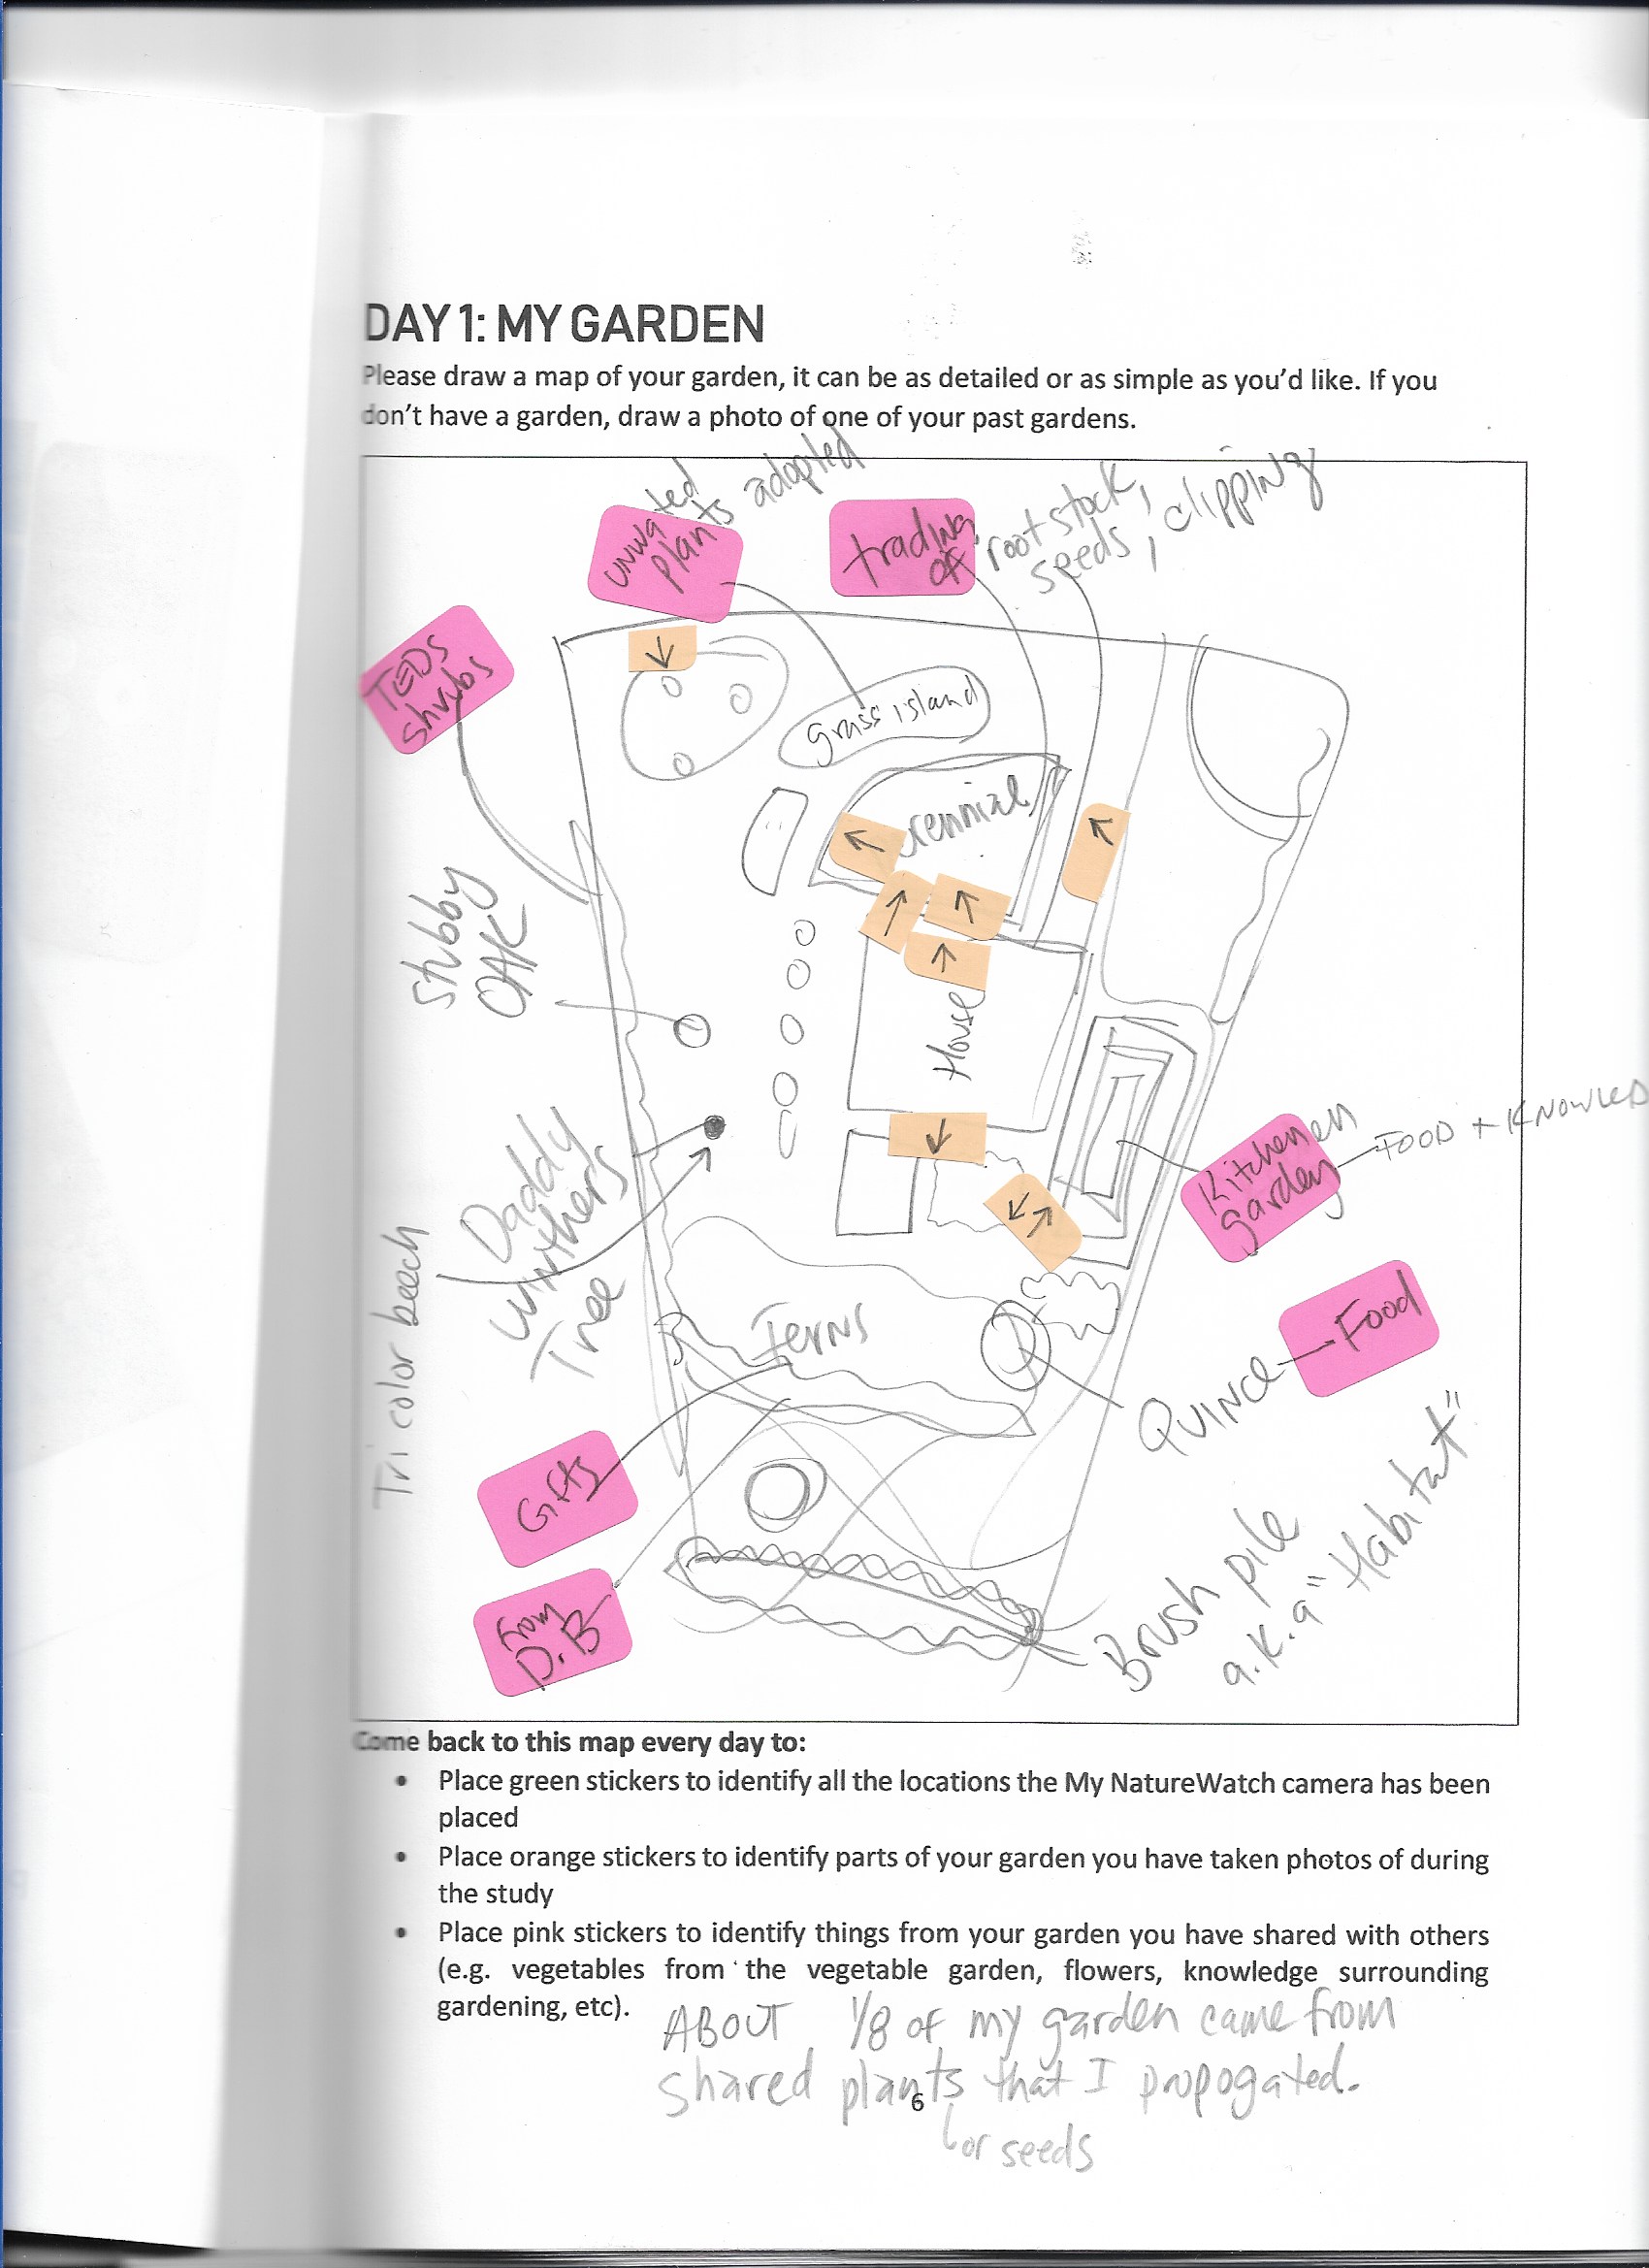 DAY 1: MY GARDEN
Please draw a map of your garden, it can be as detailed or as simple as you'd like. If you
don't have a garden, draw a photo of one of your past gardens.
unwated
plants adopted
trading of
root stock,
seeds, clipping
TEDS
shrubs
grass island
rennial
Stubby
OAK
House
Daddy
Winthers
Tree
Tri color beech
Kitchenen
garden
FOOD + KNOWLED
Ferns
Food
QUINCE
Gifts
From
D.B
Brush pile
a.k.a "Habitat"
Come back to this map every day to:
• Place green stickers to identify all the locations the My NatureWatch camera has been
placed
• Place orange stickers to identify parts of your garden you have taken photos of during
the study
• Place pink stickers to identify things from your garden you have shared with others
(e.g. vegetables from the vegetable garden, flowers, knowledge surrounding
gardening, etc).
ABOUT 1/8 of my garden came from
shared plants that I propogated.
6
or seeds